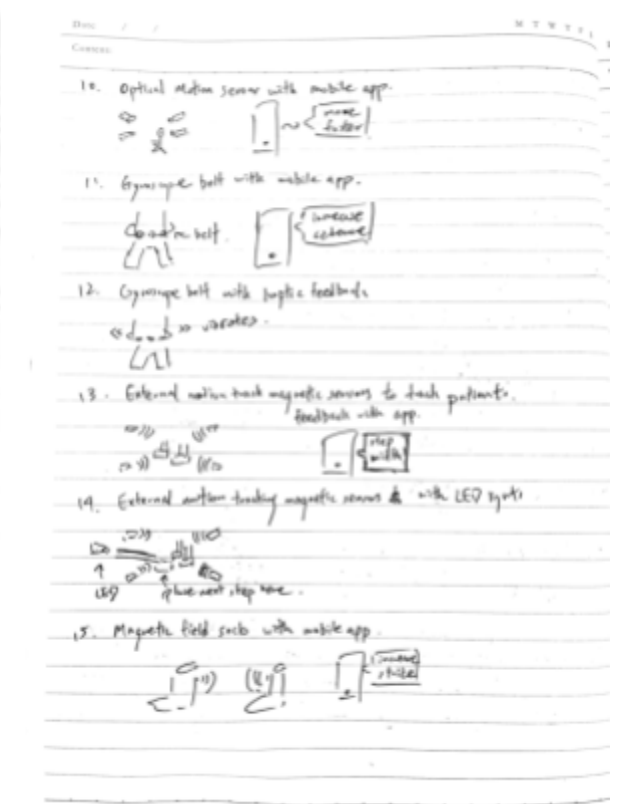 Date: / /
M T W T F
Content:
10. Optical Motion sensor with mobile app.
move
faster
11. Gyroscope belt with mobile app.
belt.
increase
cadence
12. Gyroscope belt with haptic feedback
vibrates.
13. External motion track magnetic sensors to track patients.
feedback with app.
step
width
14. External motion tracking magnetic sensors with LED lights
LED
place next step here.
15. Magnetic field socks with mobile app.
increase
stride